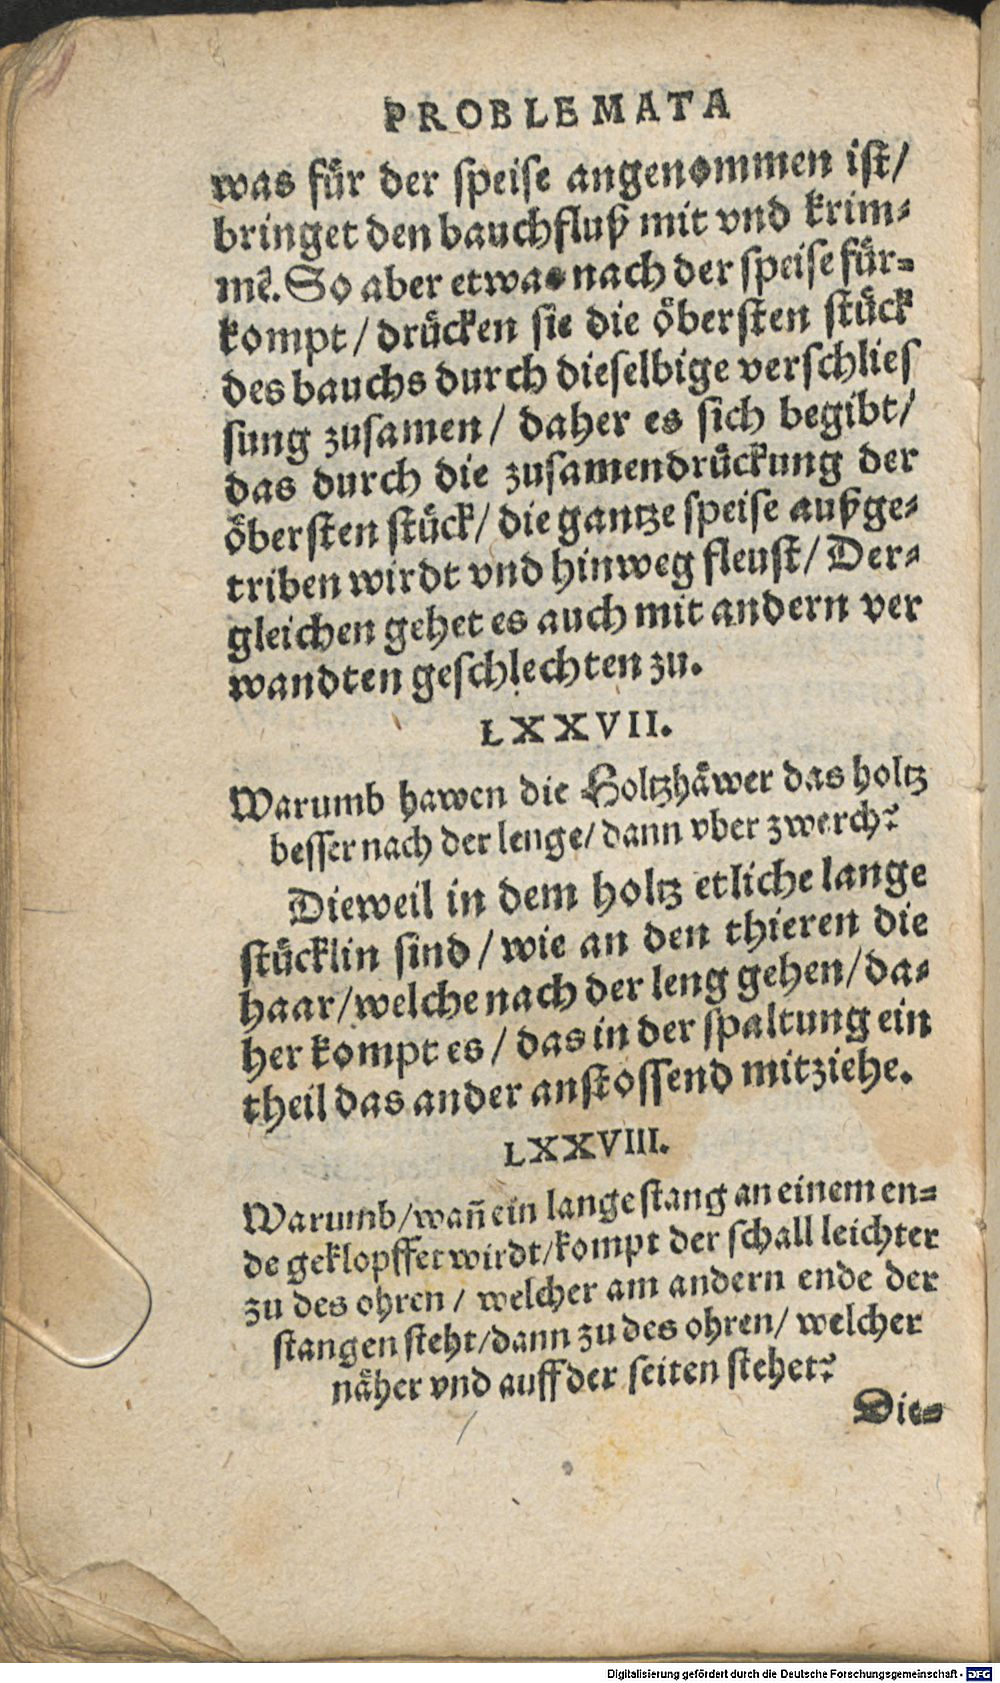 PROBLEMATA
was fuͤr der speise angenommen ist/
bringet den bauchfluß mit vnd krim⸗
mē. So aber etwas nach der speise fuͤr⸗
kompt/ druͤcken sie die oͤbersten stuͤck
des bauchs durch dieselbige verschlies
sung zusamen/ daher es sich begibt/
das durch die zusamendruͤckung der
oͤbersten stuͤck/ die gantze speise außge⸗
triben wirdt vnd hinweg fleust/ Der⸗
gleichen gehet es auch mit andern ver
wandten geschlechten zu.
LXXVII.
Warumb hawen die Holtzhaͤwer das holtz
besser nach der lenge/ dann vber zwerch?
Dieweil in dem holtz etliche lange
stuͤcklin sind/ wie an den thieren die
haar/ welche nach der leng gehen/ da⸗
her kompt es/ das in der spaltung ein
theil das ander anstossend mitziehe.
LXXVIII.
Warumb/ wañ ein lange stang an einem en⸗
de geklopffet wirdt/ kompt der schall leichter
zu des ohren/ welcher am andern ende der
stangen steht/ dann zu des ohren/ welcher
naͤher vnd auff der seiten stehet?
Die⸗
Digitalisierung gefördert durch die Deutsche Forschungsgemeinschaft - DFG